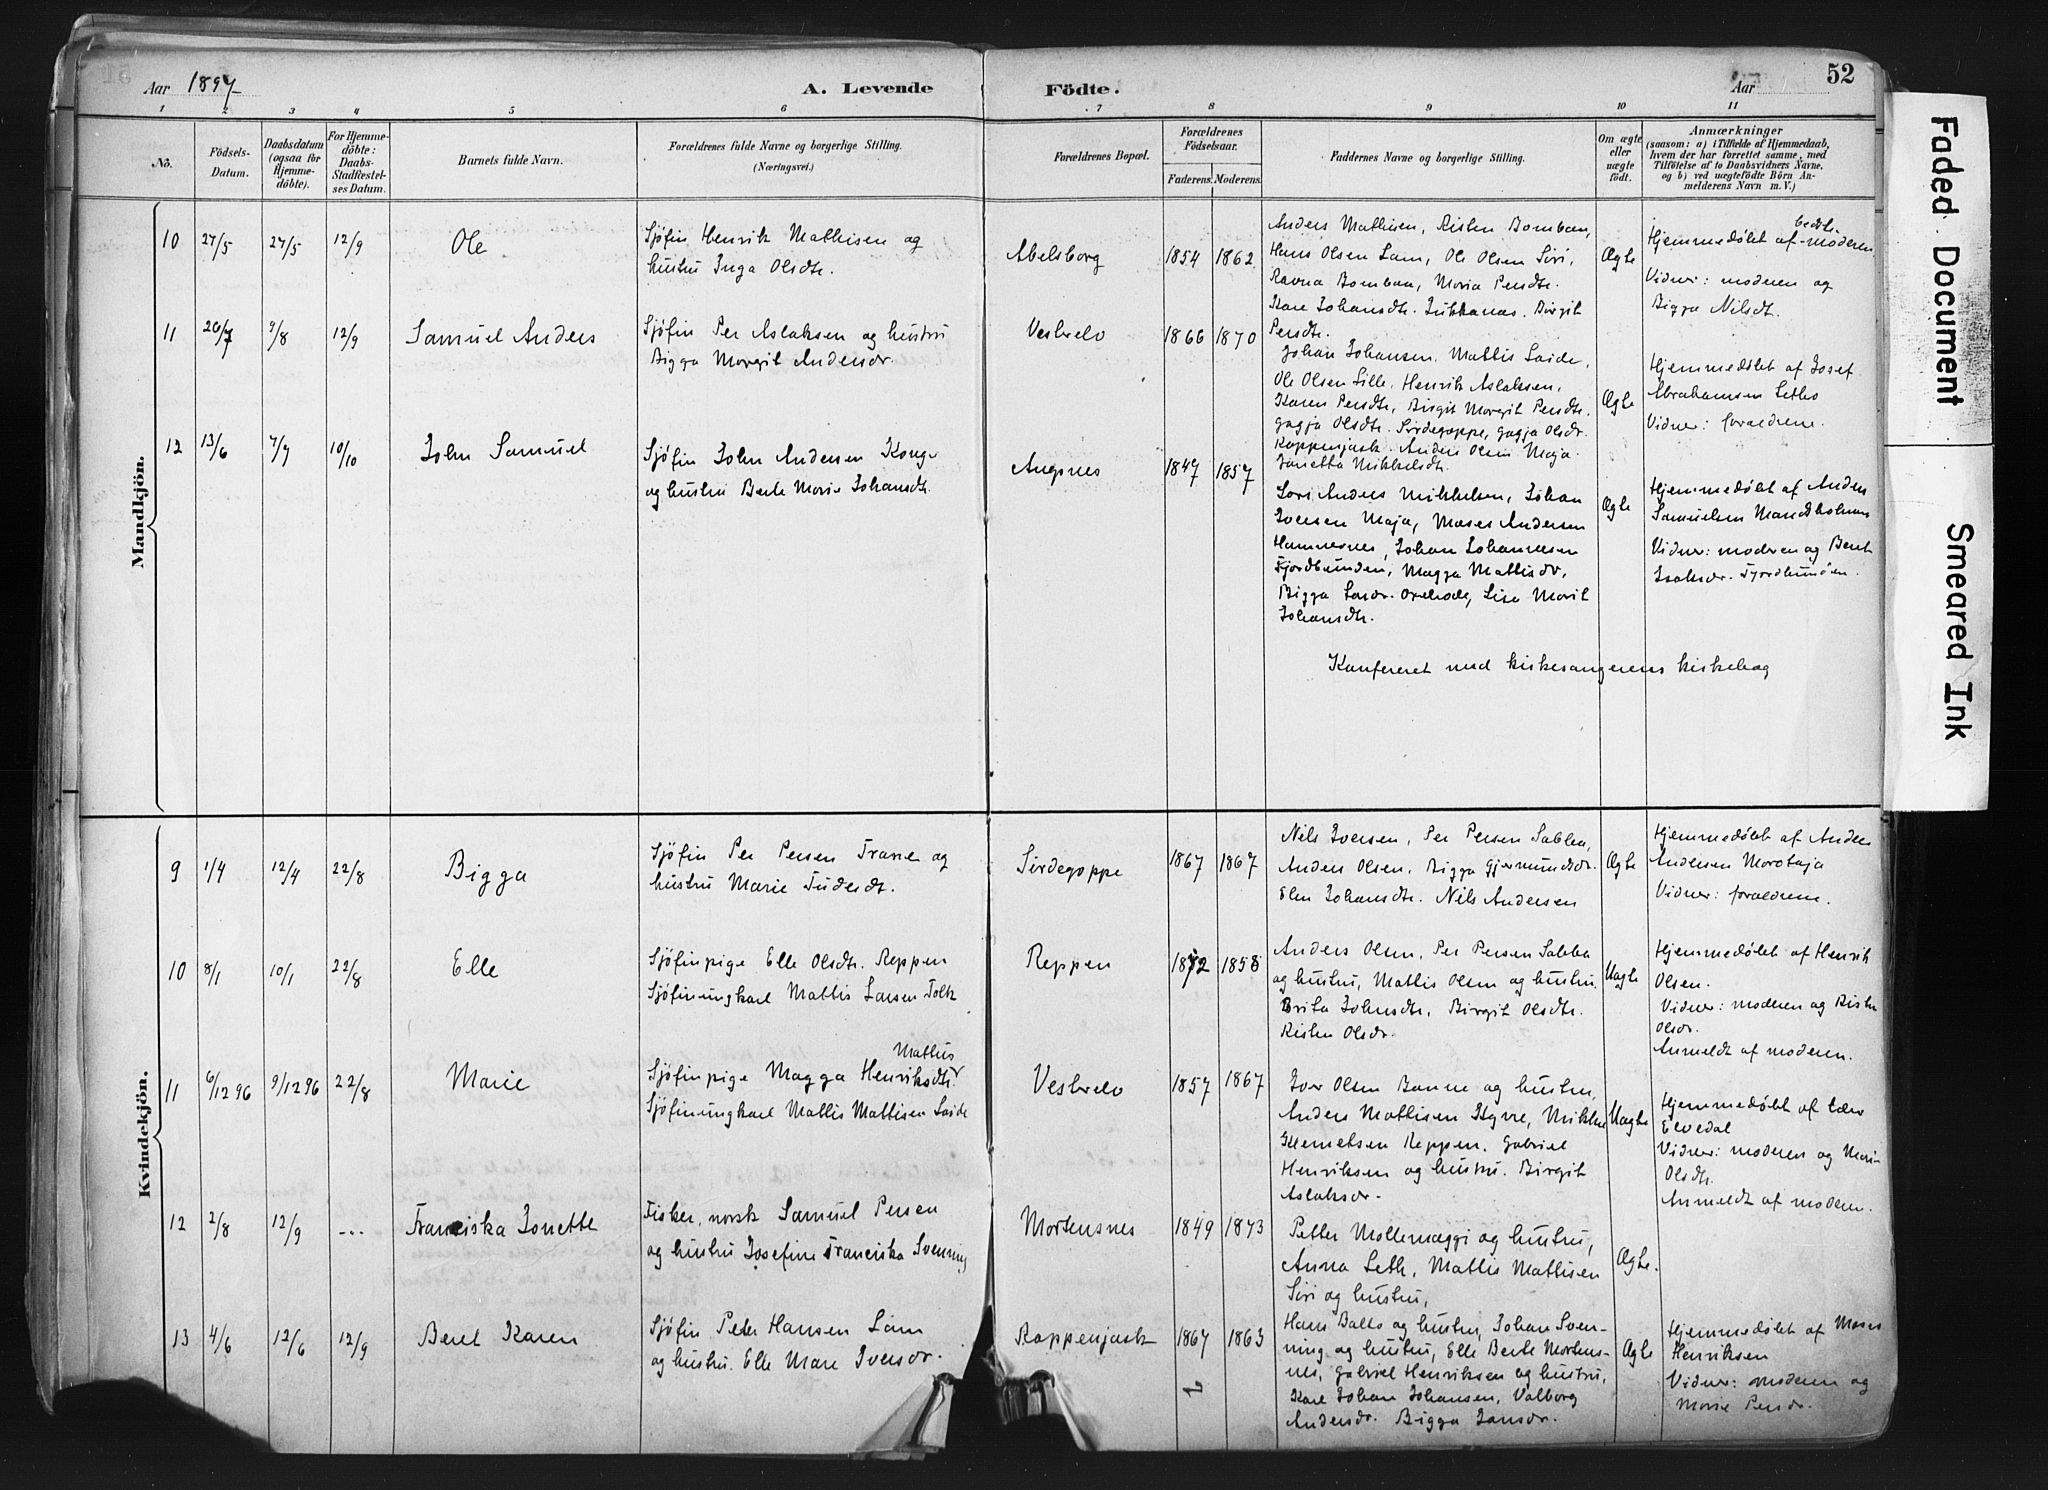 52
Aar 1897
A. Levende Födte.
Aar
1 2 3 4 5 6 7 8 9 10 11
No.
Födsels-Datum.
Daabsdatum (ogsaa for Hjemme-döbte).
For Hjemme-döbte: Daabs-Stadfæstel-ses Datum.
Barnets fulde Navn.
Forældrenes fulde Navne og borgerlige Stilling.
(Næringsvei.)
Forældrenes Bopæl.
Forældrenes Födselsaar.
Faderens. Moderens.
Faddernes Navne og borgerlige Stilling.
Om ægte eller uægte födt.
Anmærkninger
(saasom: a) i Tilfælde af Hjemmedaab,
hvem der har forrettet samme, med
Tilföielse af to Daabsvidners Navne,
og b) ved uægtefödte Börn An-
melderens Navn m. V.)
Mandkjön.
10 27/5 27/5 12/9 Ole
Sjöfin Henrik Mathisen og
hustru Inga Olsdtr.
Abelsborg 1854 1862
Anders Mathisen, Risten Bomban,
Hans Olsen Lam, Ole Olsen Siri,
Ravna Bomban, Maria Persdtr.
Kare Johansdtr. Jukkanas. Birgit
Persdtr.
Ægte
Hjemmedøbt af moderen
Vidner: moderen og
Bigga Nilsdt.
11 20/7 9/8 12/9 Samuel Anders
Sjöfin Per Aslaksen og hustru
Bigga Margit Andersdr.
Vesterelv 1866 1870
Johan Johansen. Mattis Saide,
Ole Olsen Lille. Henrik Aslaksen,
Karen Persdtr, Birgit Margit Persdtr.
Gagja Olsdtr. Sirdegoppe, Gagja Olsdr.
Roppenjask. Anders Olsen Maja.
Janetta Mikkelsdtr.
Ægte
Hjemmedøbt af Josef
Abrahamsen
Vidner: forældrene.
12 13/6 7/7 10/10 John Samuel
Sjöfin John Andersen Kong
og hustru Berte Marie Johansdtr.
Angsnes 1847 1857
Lars Anders Mikkelsen, Johan
Iversen Maja, Moses Andersen
Hamnesnes, Johan Johannesen
Fjordbunden, Magga Mattisdr,
Bigga Larsdr. Lisa Marit
Johansdtr.
Ægte
Hjemmedøbt af Anders
Samuelsen
Vidner: moderen og Beret
Isaksdr. Fjordbunden.
Konfereret med kirkesangerens kirkebog
Kvindekjön.
9 1/4 12/4 22/8 Bigga
Sjöfin Per Persen Trane og
hustru Marie Tudesdt.
Sirdegoppe 1867 1867
Nils Iversen, Per Persen Sabba,
Anders Olsen, Bigga Gjermundsdr.
Elen Johansdtr. Nils Andersen
Ægte
Hjemmedøbt af Anders
Andersen Morotaja
Vidner: forældrene.
10 8/1 10/1 22/8 Elle
Sjöfinpige Elle Olsdtr. Reppen
Sjöfinungkarl Mattis Larsen Tolk
Reppen 1872 1858
Anders Olsen, Per Persen Sabba
og hustru, Mattis Olsen og hustru,
Brita Johnsdtr, Birgit Olsdtr.
Risten Olsdr.
Uægte
Hjemmedøbt af Henrik
Olsen.
Vidner: moderen og Risten
Olsdr.
Anmeldt af moderen.
11 6/12 96 9/12 96 22/8 Marie
Sjöfinpige Magga Henriksdtr.
Sjöfinungkarl Mattis Mattisen Saide
Vesterelv 1857 1867
Iver Olsen Banne og hustru,
Anders Mattisen Kyrre, Mikkel
Klemetsen Reppen, Gabriel
Henriksen og hustru. Birgit
Aslaksdr.
Uægte
Hjemmedøbt af lærer
Elvedal
Vidner: moderen og Mari
Olsdtr.
Anmeldt af moderen.
12 2/8 12/9 --- Franciska Jonette
Fisker, norsk Samuel Persen
og hustru Josefine Franciska Svenning
Mortensnes 1849 1873
Petter Mollemæggi og hustru,
Anna Leth, Mattis Mattisen
Siri og hustru,
Ægte.
13 4/6 12/6 12/9 Beret Karen
Sjöfin Peter Hansen Lam
og hustru. Elle Mare Iversdr.
Roppenjask 1867 1863
Hans Balto og hustru, Johan Sven-
ning og hustru, Elle Berte Mortens-
nes, Gabriel Henriksen og hustru,
Karl Johan Johansen, Valborg
Andersdr. Bigga Jansdr.
Ægte
Hjemmedøbt af Moses
Henriksen
Vidner: moderen og
Marie Persdr.
Faded Document
Smeared Ink